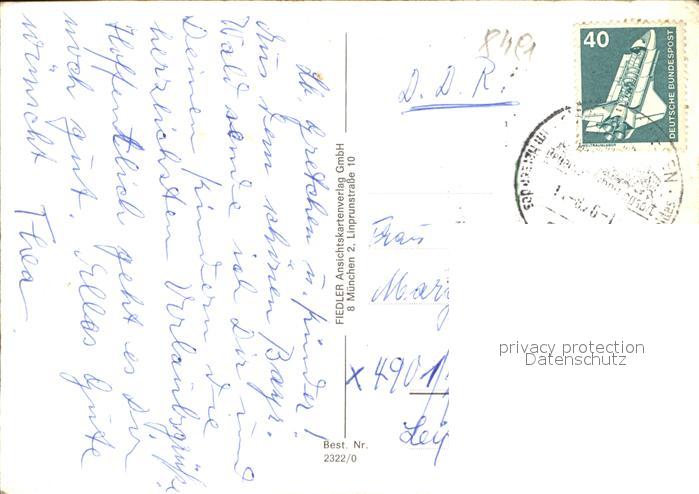 Lb. Gretchen u. Kinder!
Aus dem schönen Bayr.
Wald sende ich Dir und
Deinen Kindern die
herzlichsten Urlaubsgrüße.
Hoffentlich geht es Dir
noch gut. Alles Gute
wünscht Thea.
FIEDLER Ansichtskartenverlag GmbH
8 München 2, Linprunstraße 10
Best. Nr.
2322/0
40
DEUTSCHE BUNDESPOST
WELTRAUMLABOR
D. D. R.
Frau
x 4901
privacy protection
Datenschutz